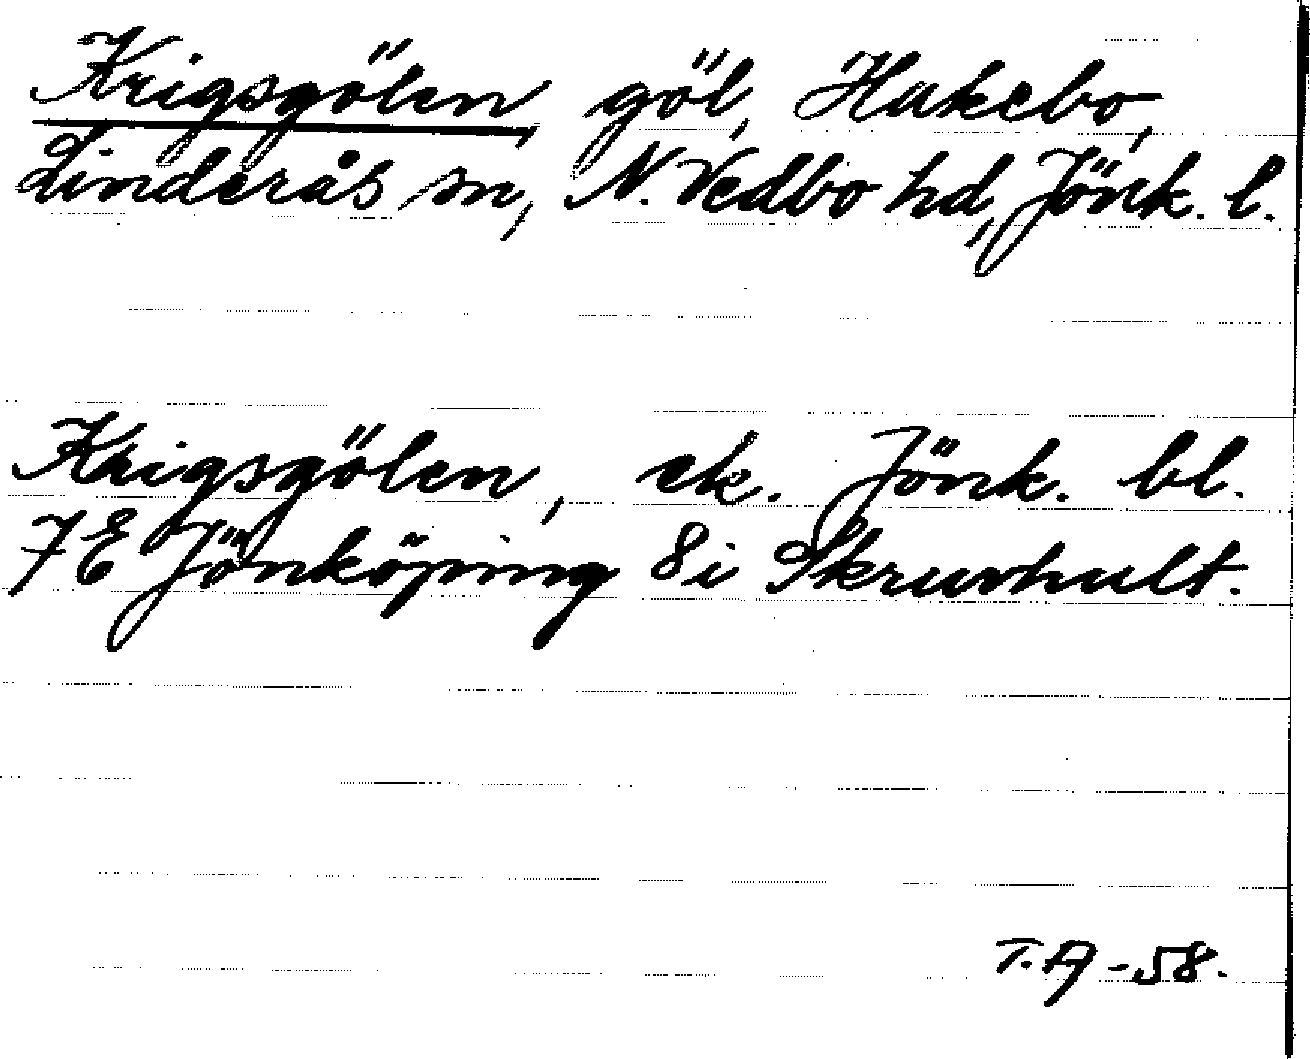 Krigsgölen, göl, Hakebo,
Linderås sn, N. Vedbo hd, Jönk. l.
Krigsgölen, ek. Jönk. bl.
7E Jönköping 8i Skruvhult.
T.A -58.